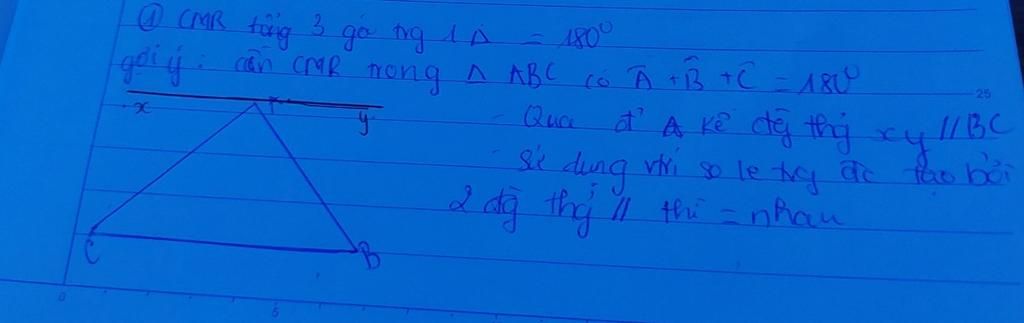 ① CMR tổng 3 gó trg 1 Δ = 180⁰
gợi ý: cần CMR trong Δ ABC có Â + B̂ + Ĉ = 180⁰
x
y
- Qua đ' A kẻ đg thg xy // BC
- Sử dụng vtrí so le trg đc tạo bởi
2 đg thg // thì = nhau
C
B
25
0
5